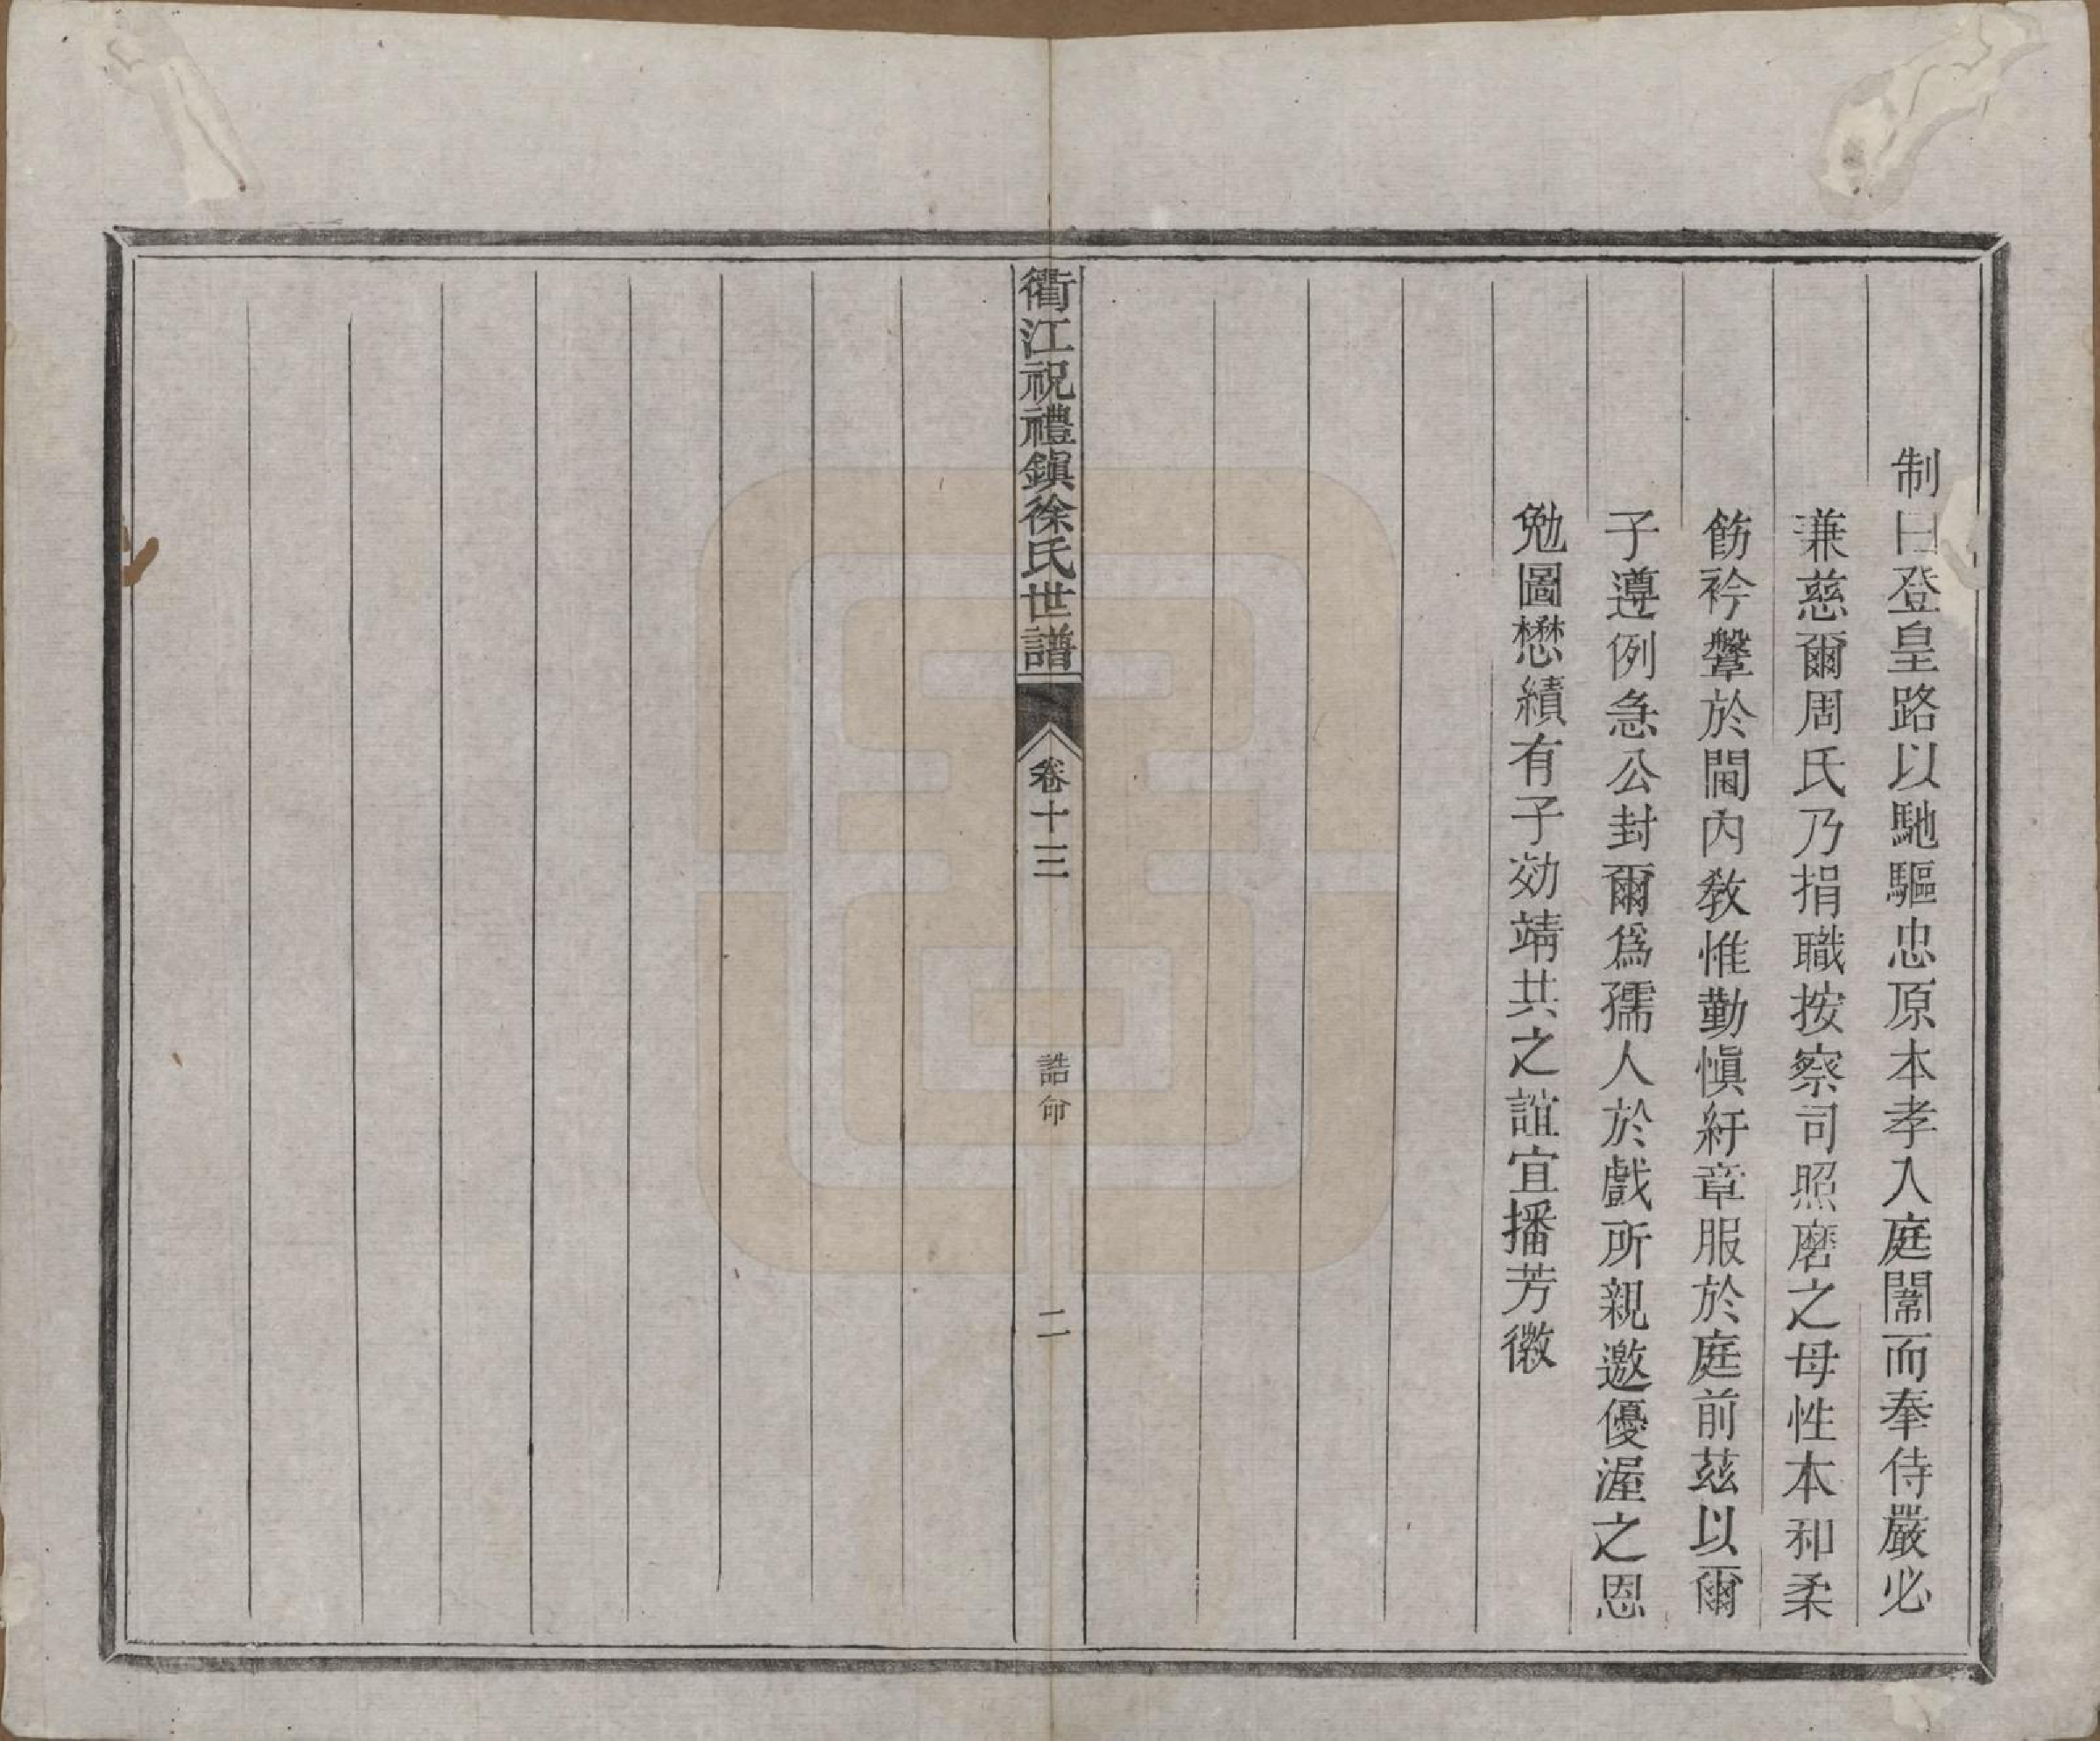 制曰登皇路以馳驅忠原本孝入庭闈而奉侍嚴必
兼慈爾周氏乃捐職按察司照磨之母性本和柔
飭衿鞶於閫內教惟勤慎紆章服於庭前茲以爾
子遵例急公封爾爲孺人於戲所親邀優渥之恩
勉圖懋績有子効靖共之誼宜播芳徽
衢江祝禮鎭徐氏世譜
卷十三
誥命
二